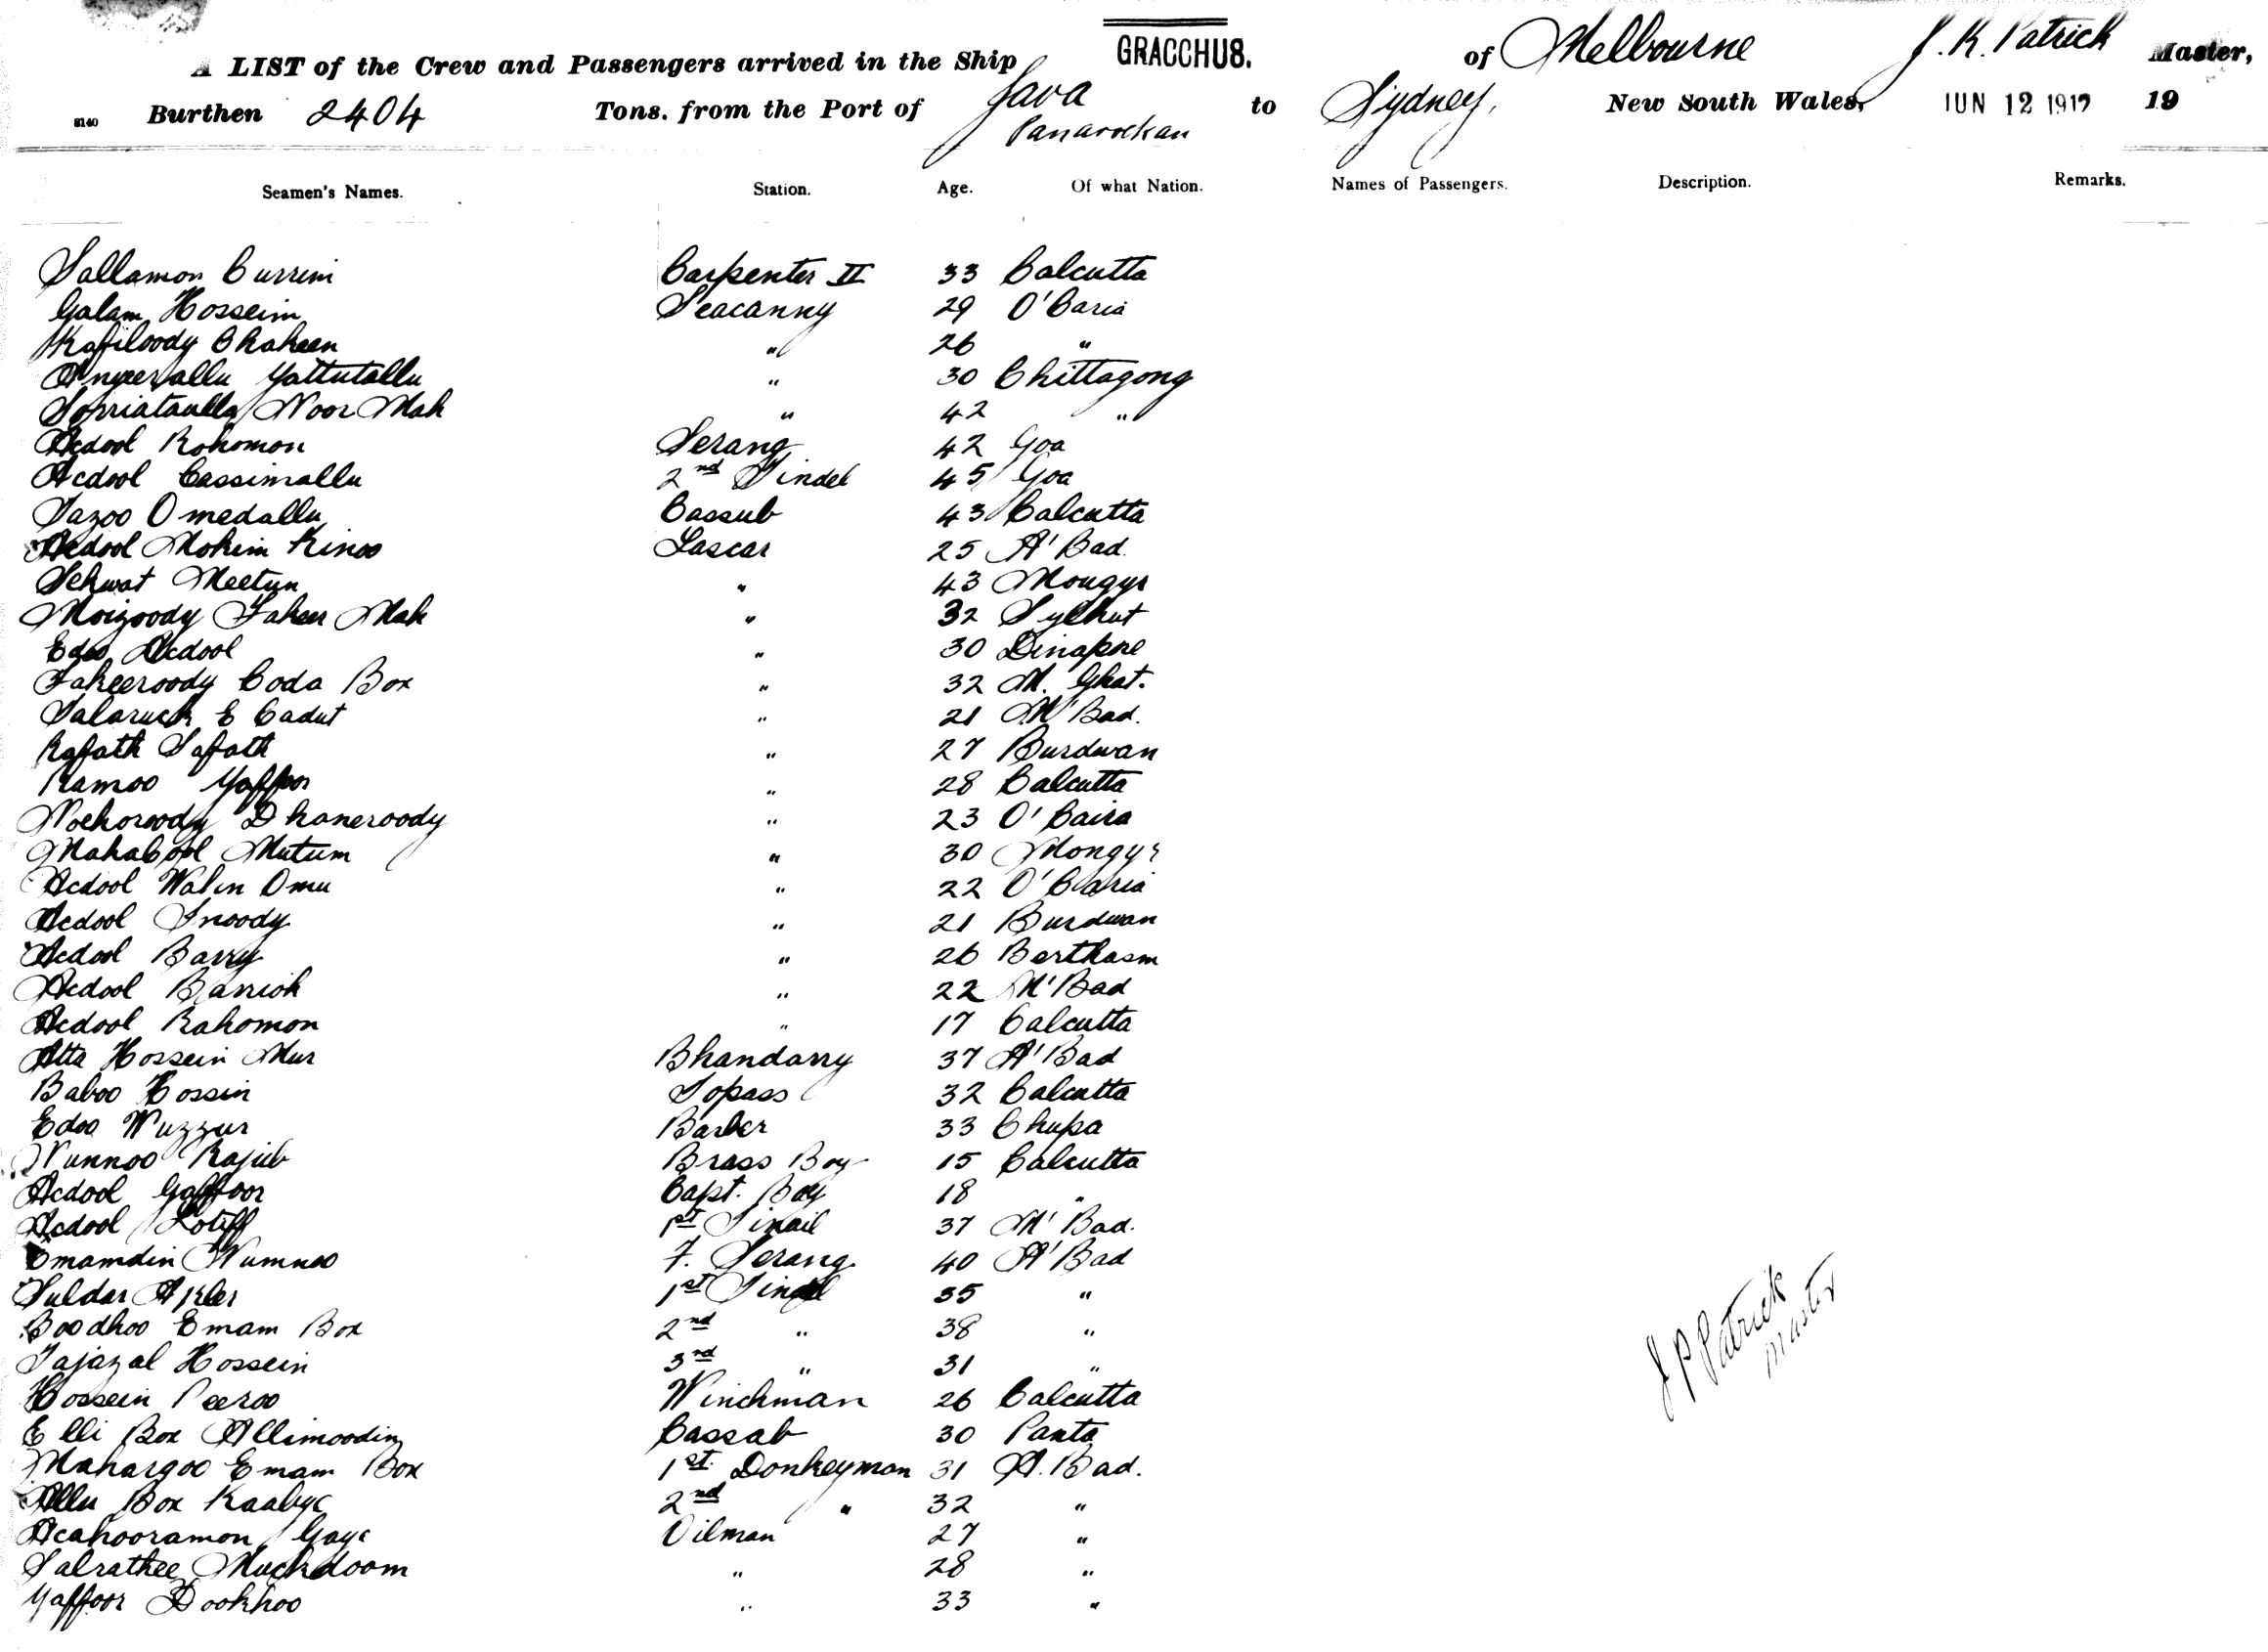 A LIST of the Crew and Passengers arrived in the Ship GRACCHUS. of Melbourne J. K. Patrick Master,
8140 Burthen 2404 Tons. from the Port of Java Panarockan to Sydney, New South Wales, JUN 12 1917 19
Seamen's Names. Station. Age. Of what Nation. Names of Passengers. Description. Remarks.
Sallamon Currim Carpenter II 33 Calcutta
Galam Hosseim Seacanny 29 O'Baria
Kafiloody Chakeen " 26 "
Yattutallu " 30 Chittagong
Noor Mah " 42 "
Acdool Rohomon Serang 42 Goa
Acdool Cassimallu 2nd Tindel 45 Goa
Omedallu Cassub 43 Calcutta
Acdool Mohim Kinoo Lascar 25 A'Bad.
Sehwat Meetun " 43 Mongyr
Moizoody Faheer Mah " 32 Sylhut
Edoo Acdool " 30 Dinapore
Faheeroody Coda Box " 32 M. Ghat.
Salaruck E Cadut " 21 M'Bad.
Rafath Safath " 27 Burdwan
Ramoo Yaffoor " 28 Calcutta
Nochoroody Dhaneroody " 23 O'Baira
Mahabool Mutum " 30 Mongyr
Acdool Wahn Omu " 22 O'Baria
Acdool Snoody " 21 Burdwan
Acdool Barry " 26 Berthasm
Acdool Barrick " 22 M'Bad
Acdool Rahomon " 17 Calcutta
Atta Hossein Mur Bhandarry 37 A'Bad
Baboo Hossin Topass 32 Calcutta
Edoo Wuzzur Barber 33 Chupa
Nunnoo Rajub Brass Boy 15 Calcutta
Acdool Gaffoor Capt. Boy 18 "
Acdool Lotiff 1st Tindil 37 M'Bad.
Emamdin Numnoo F. Serang 40 A'Bad
Suldar 1st Tindel 35 "
Boodhoo Emam Box 2nd " 38 "
Tajazal Hossein 3rd " 31 "
Hossein Peeroo Winchman 26 Calcutta
Elli Box Allimoodin Cassab 30 Panta
Mahargoo Emam Box 1st. Donkeyman 31 A. Bad.
Allu Box 2nd " 32 "
Acahooramon Oilman 27 "
Salrathee Muckdoom " 28 "
Yaffoor Dookhoo " 33 "
J P Patrick
master